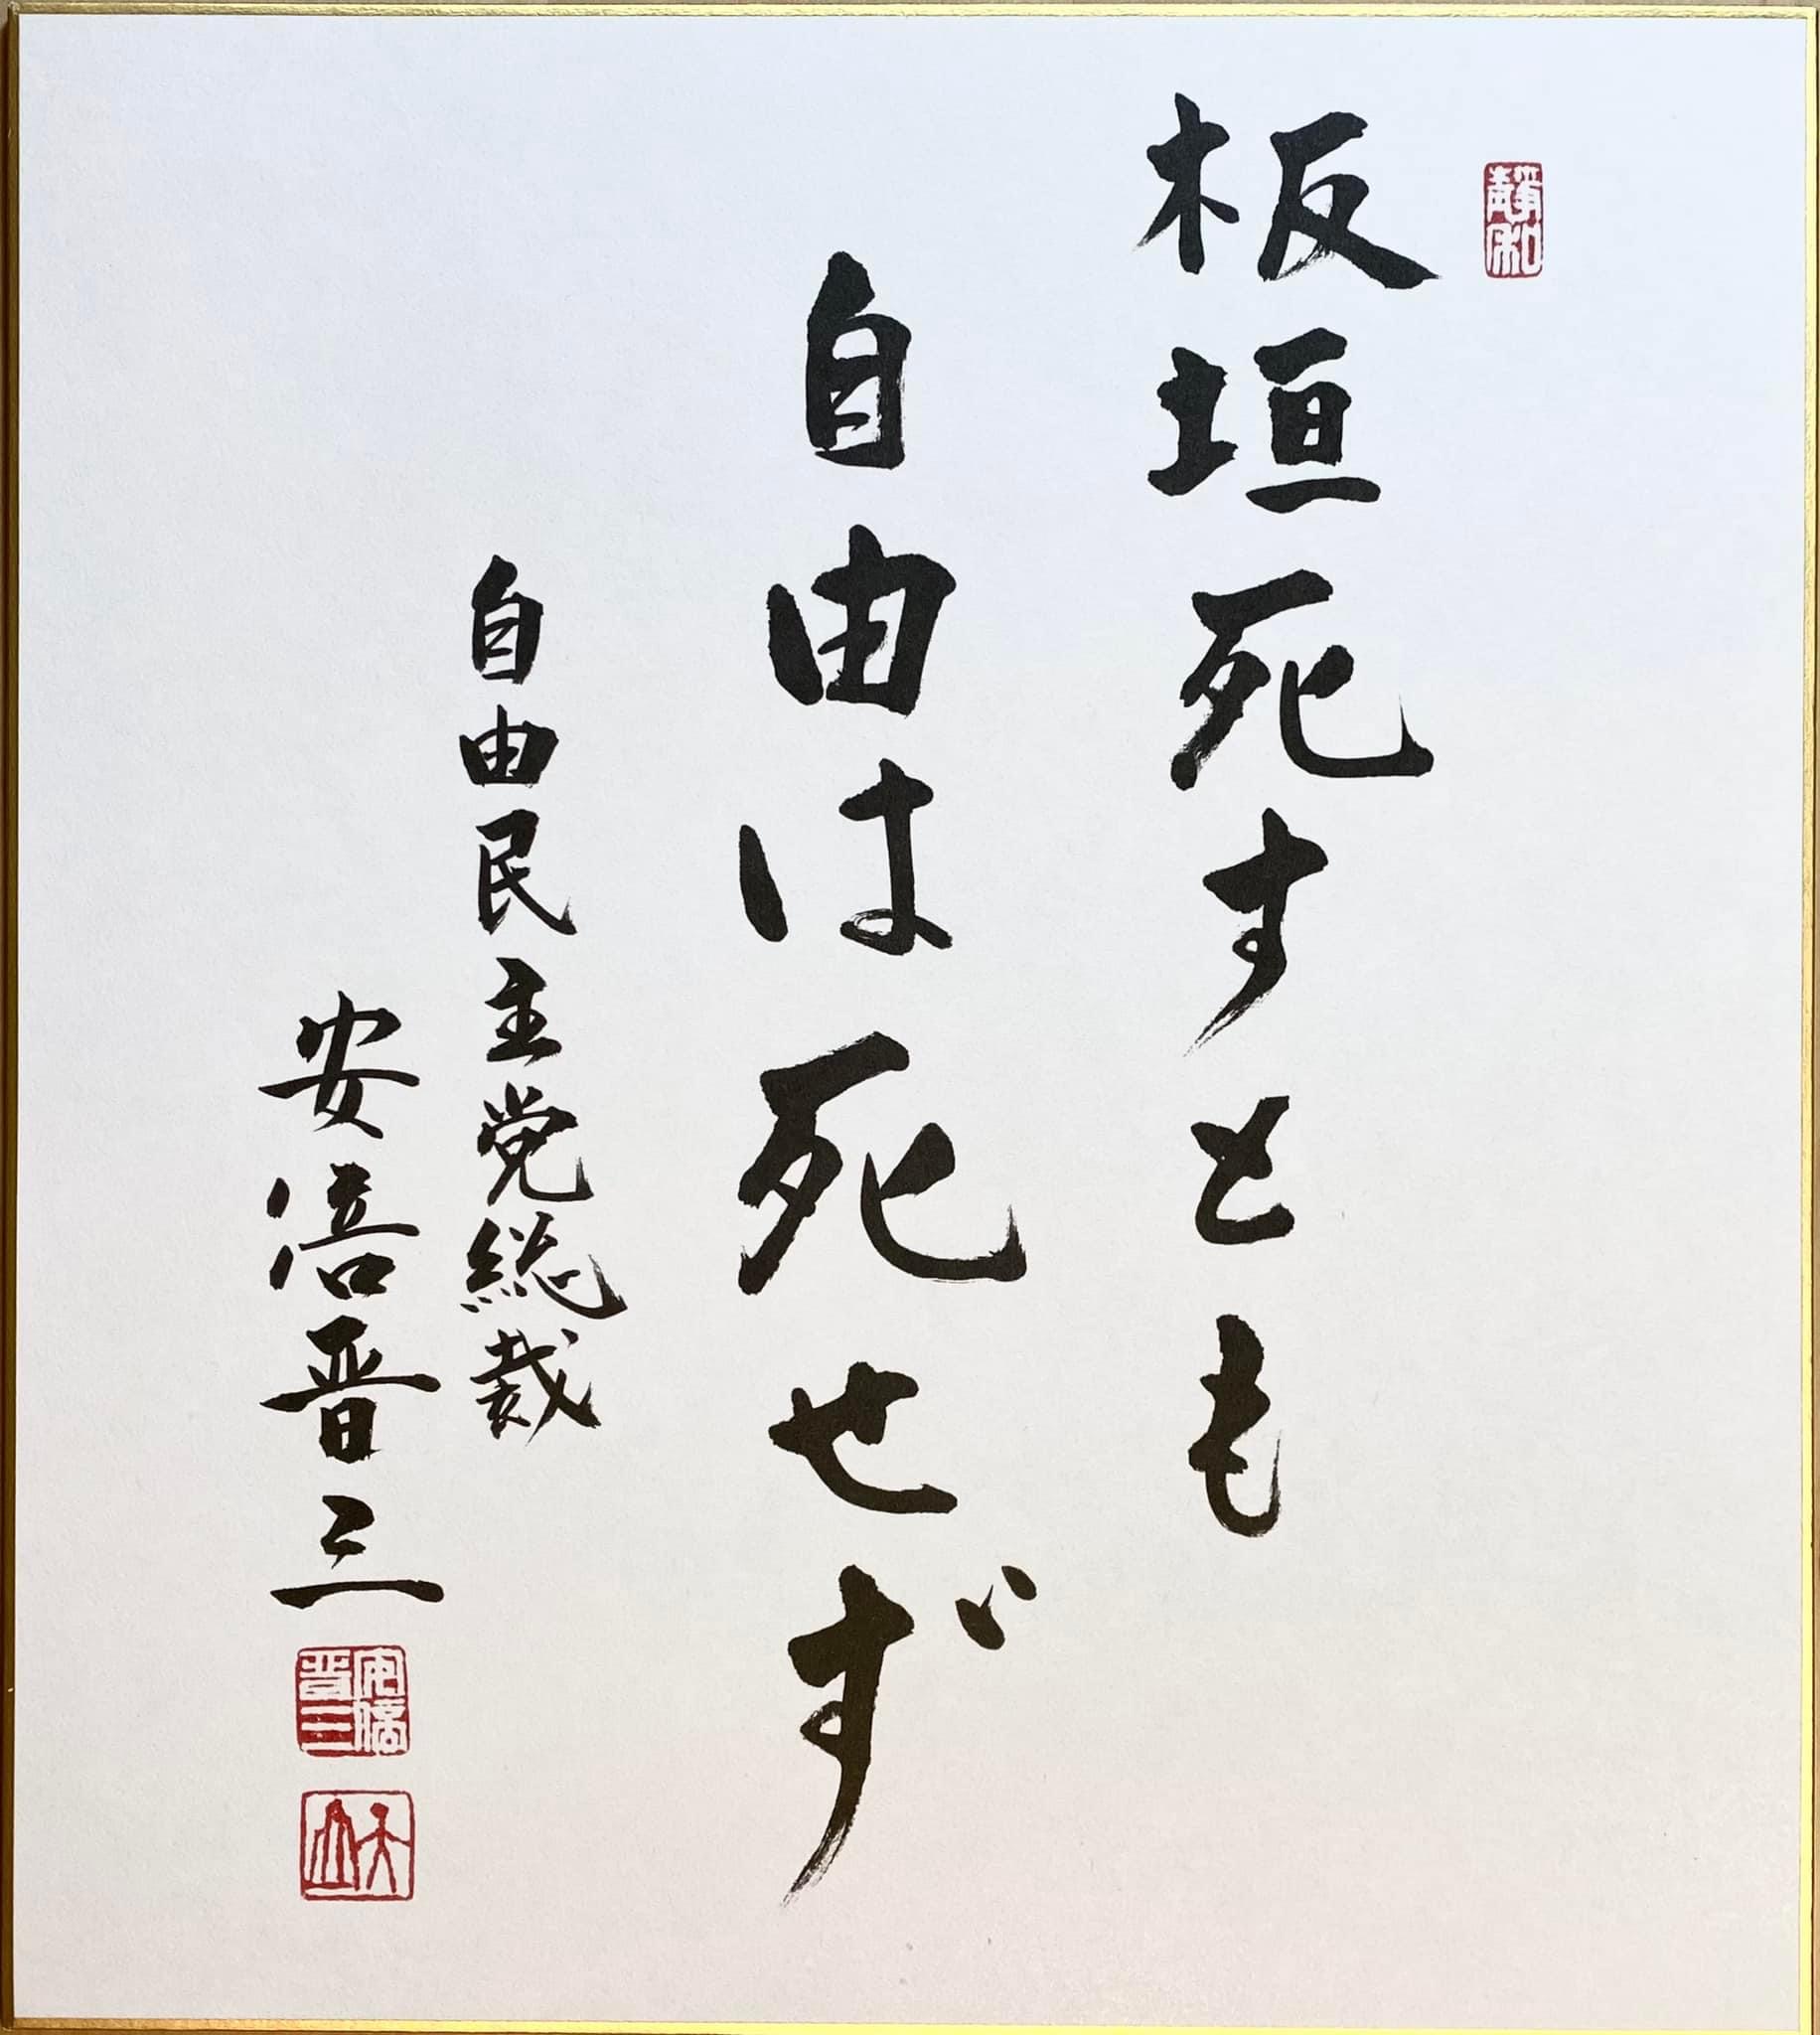 靜和
板垣死すとも
自由は死せず
自由民主党総裁
安倍晋三
安倍
晋三